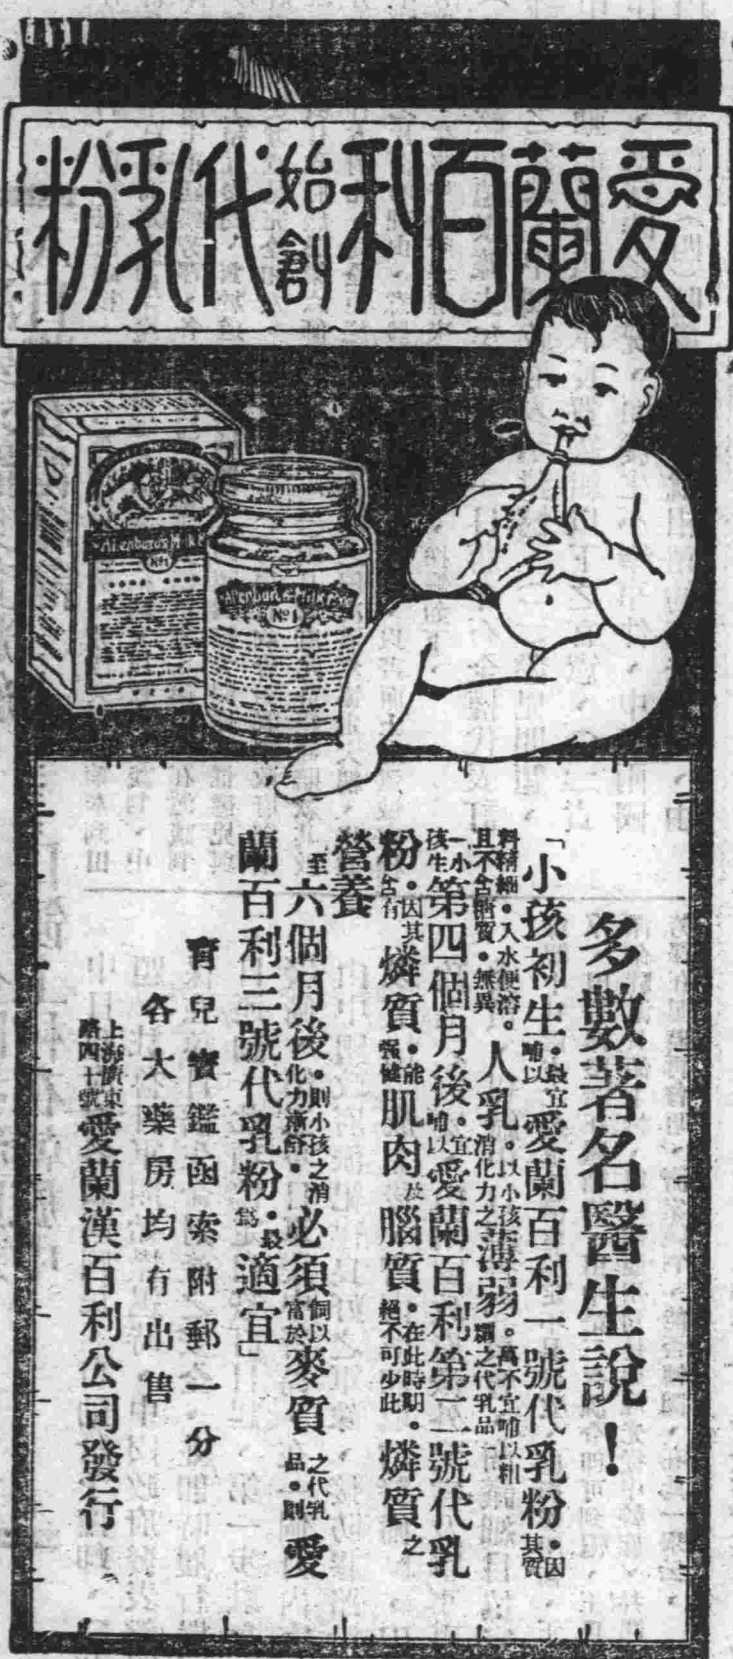 愛蘭百利始創代乳粉
Allenburys Milk
No 1
Allenburys Milk Food
No 1
多數著名醫生說！
「小孩初生・最宜哺以愛蘭百利一號代乳粉・因其質
料精細・入水便溶・且不含糖質・無異人乳。以小孩消化力之薄弱。萬不宜哺以粗糲之代乳品一
一小孩生第四個月後。宜哺以愛蘭百利第二號代乳
粉・因其含有燐質・能强健肌肉及腦質・在此時期・絕不可少此燐質之
營養
至六個月後・則小孩之消化力漸舒・必須飼以富於麥質之代乳品・則愛
蘭百利三號代乳粉・最為適宜」
育兒寶鑑函索附郵一分
各大藥房均有出售
上海廣東路四十號愛蘭漢百利公司發行